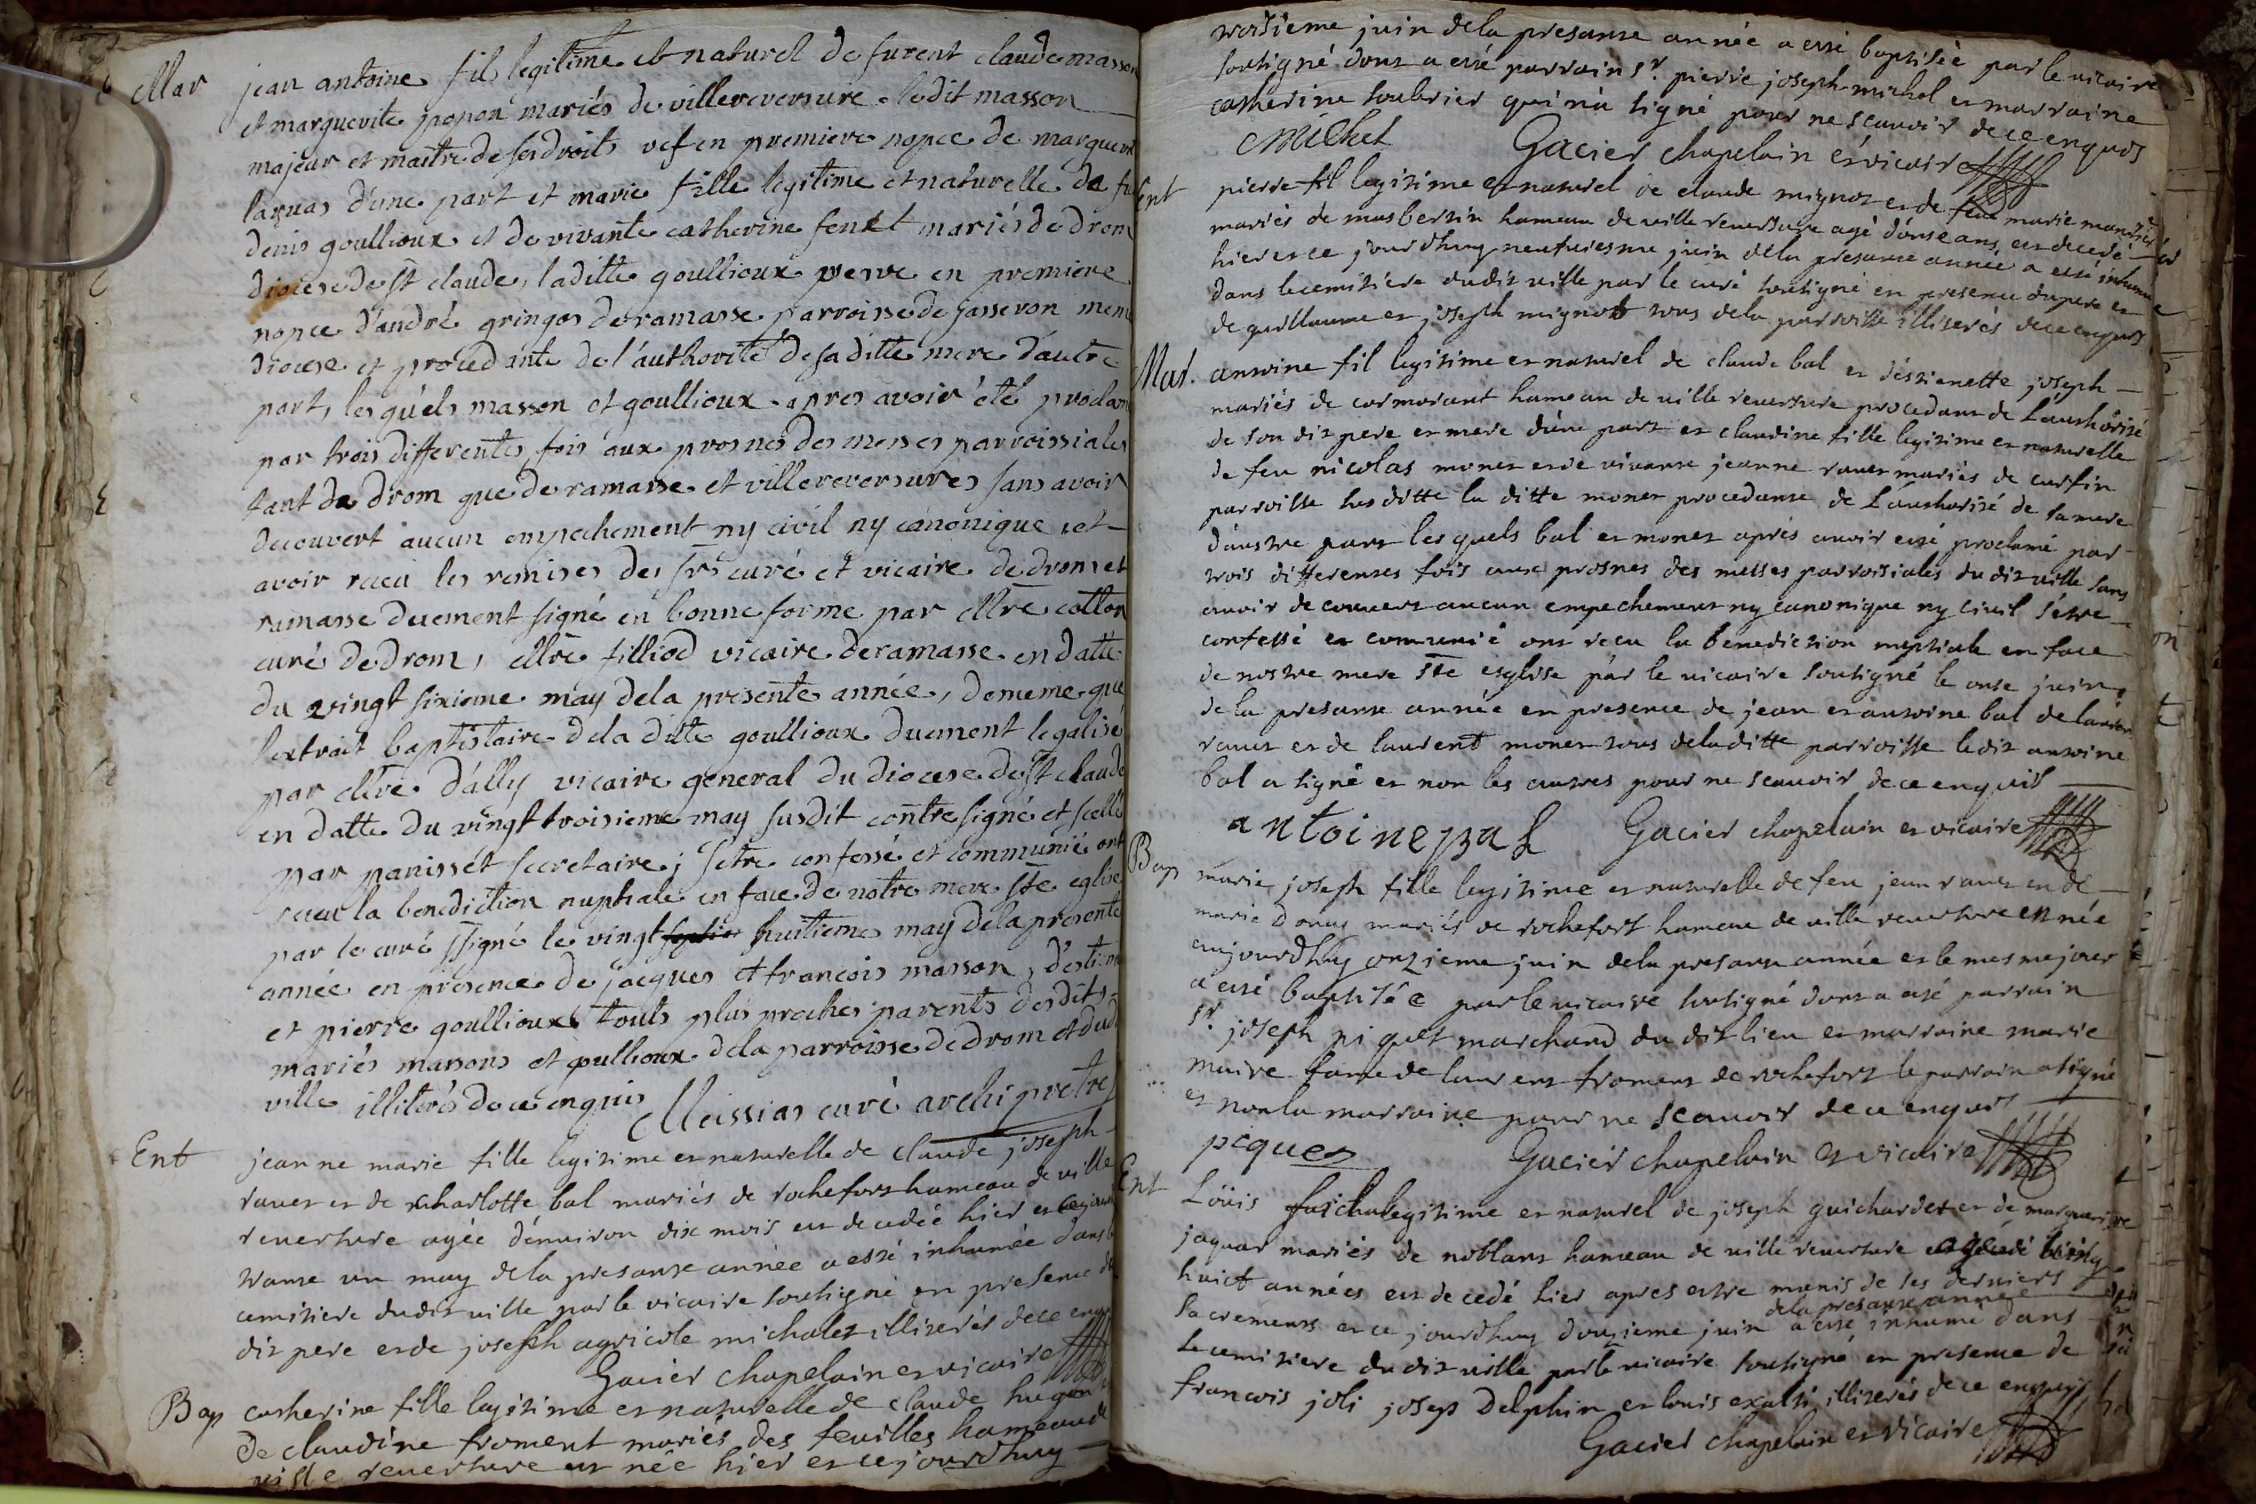 Mar jean antoine fils legitime et naturel de furent claude masson
et marguerite popon mariés de villereversure. ledit masson
majeur et maitre de ses droits vef en premiere nopce de marguerite
laruas d'une part et marie fille legitime et naturelle de fu
denis goullioux et de vivante catherine fenet mariés de drom
diocese de st claude, laditte goullioux veuve en premiere
nopce d'andré gringos de ramasse parroisse de jasseron meme
diocese et procedante de l'authorité de sa ditte mere d'autre
part, les quels masson et goullioux apres avoir été proclam
par trois differentes fois aux prosnes des messes parroissiales
tant de drom que de ramasse et villereversures sans avoir
decouvert aucun empechement ny civil ny canonique et
avoir receu les remises des srs curé et vicaire de drom et
ramasse duement signé en bonne forme par Mre cotton
curé de drom, Mre filliod vicaire de ramasse en datte
du vingt sixieme may dela presente année, de meme que
l'extrait baptistaire dela ditte goullioux duement legalisé
par Mre d'ally vicaire general du diocese de st claude
en datte du vingt troisieme may susdit contresigné et scellé
par panisset secretaire; setre confessé et communié ont
receu la benediction nuptiale en face de notre mere ste eglise
par le curé ssigné le vingt huitieme may dela presente
année en presence de jacques et francois masson, d'estienne
et pierre goullioux touts plus proches parents desdits
mariés massons et goullioux dela parroisse de drom et dud
ville illiterés de ce enquis
Meissias curé archiprêtre
Ent jeanne marie fille legitime et naturelle de claude joseph
ravet et de charlotte bal mariés de rochefort hameau de ville
reversure agée d'environ dix mois est decedée hier et ce jourd
trante un may dela presante année a esté inhumée dans le
cemitiere dudit ville par le vicaire soutigné en presence du
dit pere et de joseph agricole michalet illiterés de ce enquis
Gacier chapelain et vicaire
Bap catherine fille legitime et naturelle de claude hugon et
de claudine froment mariés des feuilles hameau de
ville reversure est née hier et ce jourdhuy
troisieme juin dela presante année a esté baptisée par le vicaire
soutigné dont a esté parrain Sr. pierre joseph michel et marraine
catherine soubrier qui n'a signé pour ne scavoir de ce enquis
Michel Gacier chapelain et vicaire
Ent pierre fil legitime et naturel de claude mignot et de feu marie
mariés de masbertin hameau de ville reversure agé d'onse ans est decedé
hier et ce jourdhuy neufviesme juin dela presante année a esté inhumé
dans le cemitiere dudit ville par le curé soutigné en presence dupere et
de guillaume et joseph mignot tous dela parroisse illiterés de ce enquis
Mar. antoine fil legitime et naturel de claude bal et d'estienette joseph
mariés de cormorant hameau de ville reversure procedant de l'authorité
de son dit pere et mere d'une part et claudine fille legitime et naturelle
de feu nicolas monet et de vivante jeanne ravet mariés de curfin
parroisse susditte la ditte monet procedante de l'authorisé de sa mere
d'autre part les quels bal et monet aprés avoir esté proclamé par
trois differentes fois aux prosnes des messes parroisiales du dit ville sans
avoir decouvert aucun empechement ny canonique ny civil s'etre
confessé et comunié ont recu la benediction nuptiale en face
de nostre mere ste esglise pár le vicaire soutigné le onse juin
de la presante année en presence de jean et antoine bal de laurent
ravet et de laurent monet tous deladitte parroisse ledit antoine
bal a signé et non les autres pour ne scauvoir de ce enquis
antoine bal Gacier chapelain et vicaire
Bap marie joseph fille legitime et naturelle de feu jean ravet et de
marie donug mariés de rochefort hameau de ville reversure est née
aujourdhuy onzieme juin dela presante année et le mesme jour
a esté baptisée par le vicaire soutigné dont a esté parrain
Sr. joseph piquet marchand du dit lieu et marraine marie
maire fame de laurent froment de rochefort le parrain a signé
et non la marraine pour ne scauvoir de ce enquis
piquet Gacier chapelain et vicaire
Ent Löuis legitime et naturel de joseph guichardet et de marguerite
jaquar mariés de noblans hameau de ville reversure agé de vingt
huict années est decedé hier apres estre munis de ses derniers
sacrements et ce jourdhuy douzieme juin dela presante année a esté inhumé dans
le cemitiere du dit ville par le vicaire soutigné en presence de
francois joli joseps Delphin et louis exalti illiterés de ce enquis
Gacier chapelain et vicaire